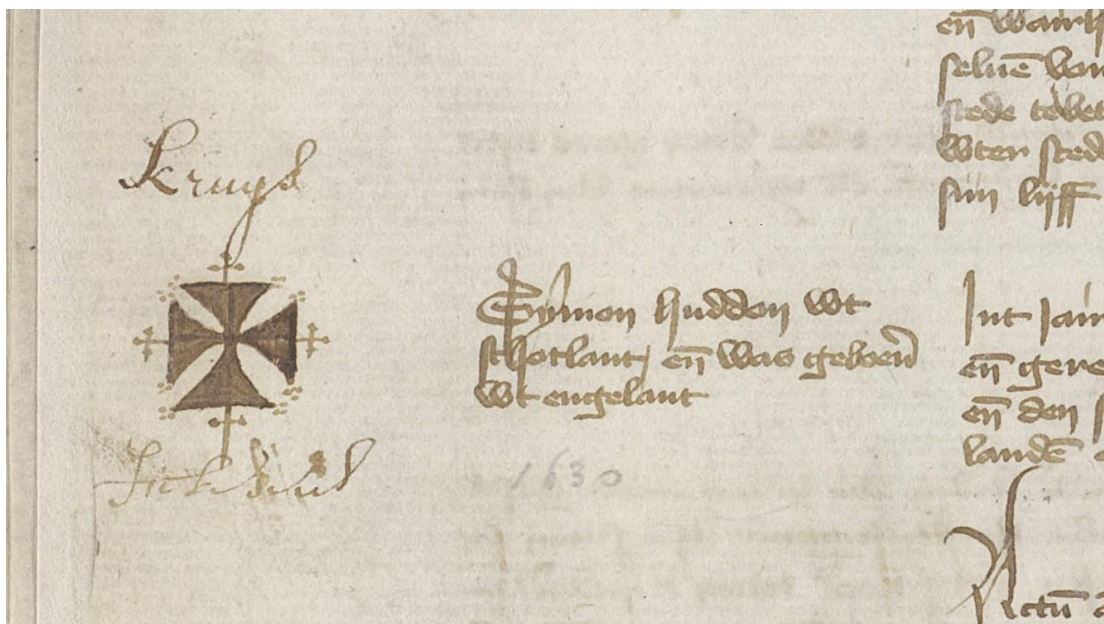 kruys
Symon hudden wt
schotlant, en̄ was geboerē
wt engelant
1630
en̄ wairh
seluē van
stede tevet
wter stede
sijn lijff
Int Jair
en̄ gere
en̄ den s
landē
Actū